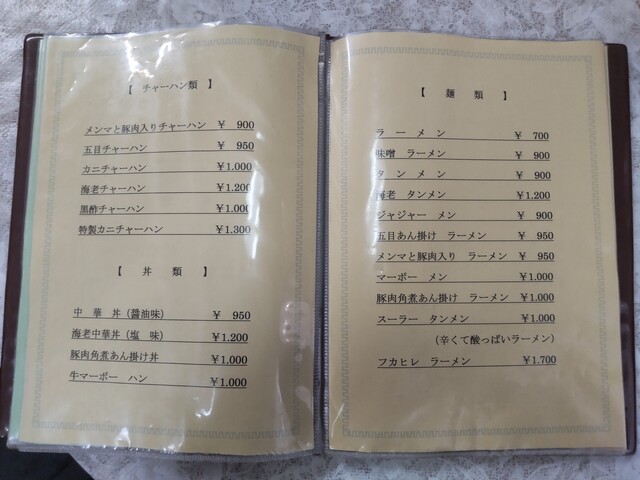 【 チャーハン類 】
メンマと豚肉入りチャーハン ￥ 900
五目チャーハン ￥ 950
カニチャーハン ￥1.000
海老チャーハン ￥1.200
黒酢チャーハン ￥1.000
特製カニチャーハン ￥1.300
【 丼 類 】
中 華 丼（醤油味） ￥ 950
海老中華丼（塩 味） ￥1.200
豚肉角煮あん掛け丼 ￥1.000
牛マーボー ハン ￥1.000
【 麺 類 】
ラ ー メ ン ￥ 700
味噌 ラーメン ￥ 900
タ ン メ ン ￥ 900
海老 タンメン ￥1.200
ジャジャー メン ￥ 900
五目あん掛け ラーメン ￥ 950
メンマと豚肉入り ラーメン ￥ 950
マーボー メン ￥1.000
豚肉角煮あん掛け ラーメン ￥1.000
スーラー タンメン ￥1.000
（辛くて酸っぱいラーメン）
フカヒレ ラーメン ￥1.700